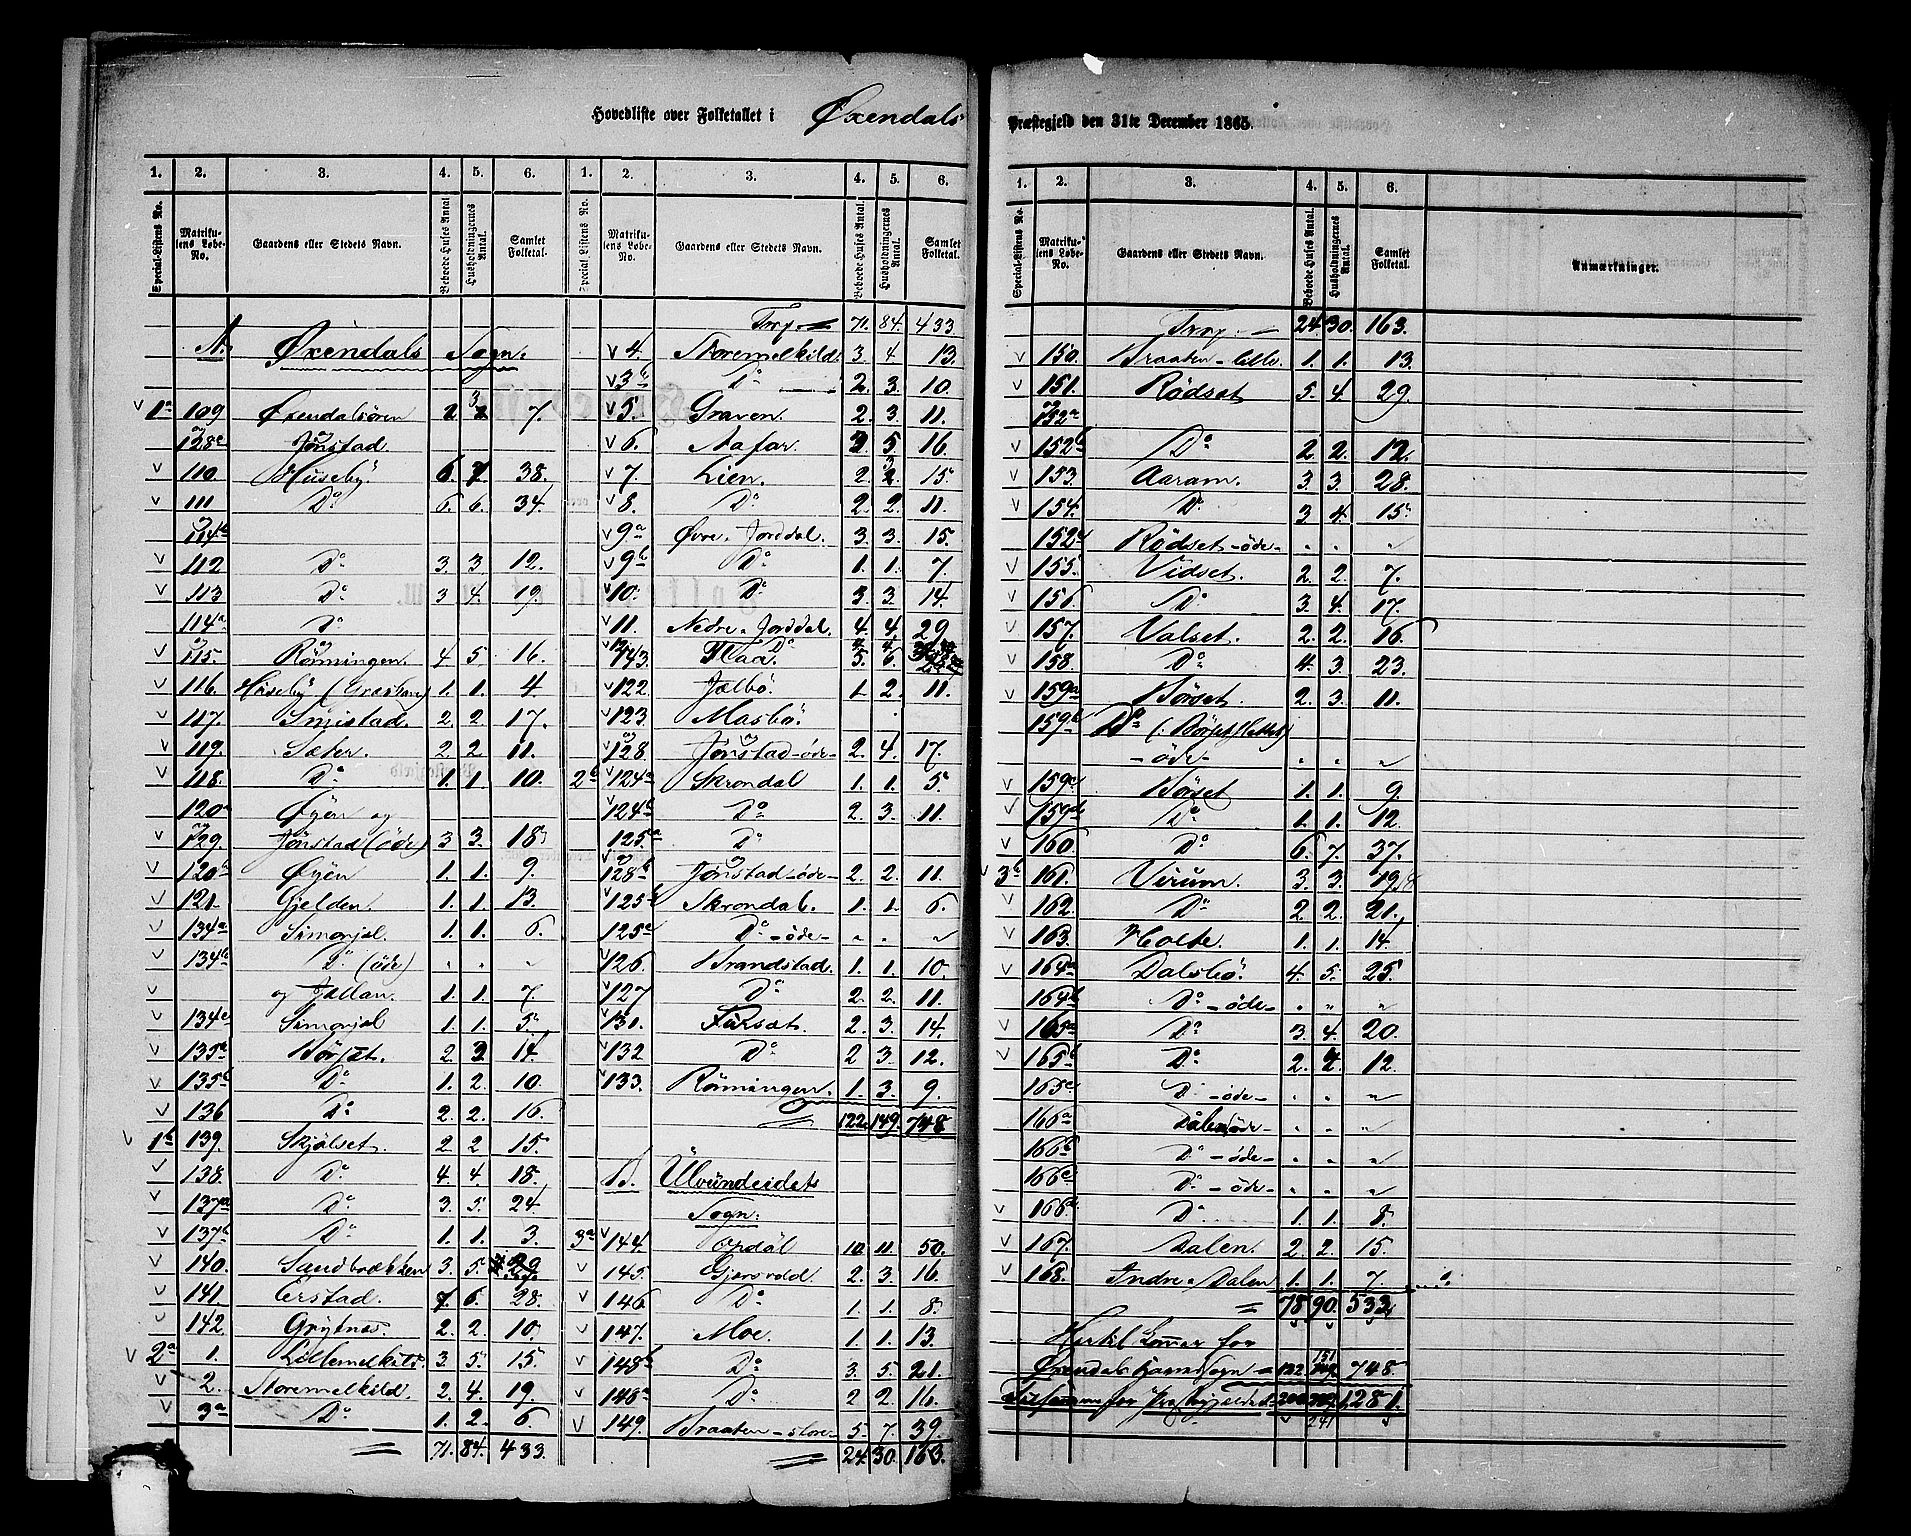 Hovedliste over Folketallet i Øxendals Præstegjeld den 31te December 1865.
1. 2. 3. 4. 5. 6. 1. 2. 3. 4. 5. 6.
Special-Listens No. Matrikulens Løbe-No. Gaardens eller Stedets Navn. Beboede Huses Antal. Husholdningernes Antal. Samlet Folketal.
A. Øxendals Sogn.
1a 109 Øxendalsören 2 7.
og 128c Jönstad
110. Huseby. 6. 7 38.
111 Do 6. 6. 34.
og 114b
112 Do 3. 3. 12.
113 Do 3 4. 19.
114a Do
og 115. Rönningen. 4 5 16.
116. Huseby (Græshavn) 1. 1. 4.
117. Smistad. 2. 2. 17.
119. Sæter. 2. 2. 11.
118. Do 1. 1. 10.
120a Øyen og
129. Jönstad (öde) 3 3. 18
120b Øyen 1. 1. 9.
121. Gjelden. 1. 1. 13.
134a Simonjel. 1. 1. 6.
134b Do (öde) " " "
og Jallan. 1. 1. 7.
134c Simonjel 1. 1. 5.
135a Börset. 2. 2 14.
135b Do 1. 2. 10.
136 Do 2. 2. 16.
1b 139. Skjölset. 2. 2 15.
138. Do 4. 4. 18.
137a Do 3. 5. 24.
137b Do 1. 1. 3.
140. Sandbrækken 3. 5. 29
141. Erstad. 7. 6. 28.
142. Grytnes. 2. 2. 10.
2a 1. Lillemelkild. 3. 5. 15.
2. Storemelkild. 2. 4. 19.
3a Do 1. 2. 6.
71. 84. 433.
Trsp. 71. 84. 433.
4. Storemelkild. 3. 4. 13.
3b Do 2. 3. 10.
5. Graven. 2. 3. 11.
6. Aafar. 3. 5 16.
7. Lien. 2. 15.
8. Do 2. 2. 11.
9a Øvre Jorddal. 3. 3. 15.
9b Do 1. 1. 7.
10. Do 3. 3. 14.
11. Nedre Jorddal. 4. 4. 29.
143. Flaa. 5. 6.
122. Jælbö. 1. 2. 11.
123 Masbö.
og 128. Jönstad öde 2. 4. 17.
2b 124a Skrondal 1. 1. 5.
124b Do 2. 3. 11.
125a Do
og 128b Jönstad öde 2. 2. 11.
125b Skrondal. 1. 1. 6.
125c Do öde " " "
126. Brandstad. 1. 1. 10.
127 Do 2. 2. 11.
131. Fürsæt. 2. 3. 14.
132 Do 2 3. 12.
133. Rönningen. 1. 3. 9.
122. 149. 748.
B. Ulvündeidets Sogn.
3a 144. Opdöl 10. 11. 50.
145. Gjersvold. 2. 3. 16.
146. Do 1. 1. 8.
147. Moe. 1. 1. 13.
148b Do 3. 5. 21.
148a Do 2 2. 16.
149. Braaten store 5. 7. 39.
24. 30. 163.
1. 2. 3. 4. 5. 6.
Special-Listens No. Matrikulens Løbe-No. Gaardens eller Stedets Navn. Beboede Huses Antal. Husholdningernes Antal. Samlet Folketal. Anmærkninger.
Trsp. 24. 30. 163.
150. Braaten lille. 1. 1. 13.
151. Rödset 5. 4. 29.
og 152a
152b Do 2. 2. 12.
153. Aaram. 3. 3. 28.
154. Do 3 4. 15
152c Rödset öde " " "
155. Vidset. 2. 2. 7.
156. Do 3. 4. 17.
157. Valset. 2. 2. 16.
158. Do 4. 3. 23.
159a Börset. 2. 3. 11.
159b Do (: Börsetsletten)
öde " " "
159c Böset 1. 1. 9.
159d Do 1. 1. 12.
160. Do 6. 7. 37.
3b 161. Virum. 3. 3. 19
162. Do 2. 2. 21.
163. Holte. 1. 1. 14.
164a Dalsbö. 4. 5. 25.
164b Do öde " " "
165a Do 3. 4. 20.
165b Do 2. 4. 12.
165c Do öde " " "
166a Dalen öde " " "
166b Do öde " " "
166c Do öde " " "
166d Do 1. 1. 8.
167. Dalen. 2. 2. 15.
168. Indre Dalen 1. 1. 7.
78. 90. 532
Hertil kommer for
Øxendals Hovedsogn 122 151 748.
Tilsammen for Præstegjeldet 200 1281.
241